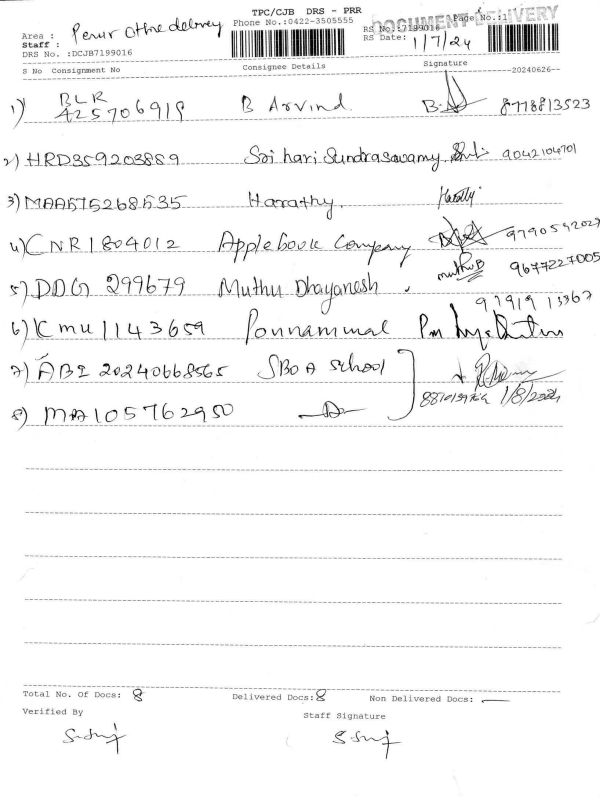 TPC/CJB DRS - PRR
DOCUMENT DELIVERY
Phone No.:0422-3505555
Page No.:1
Area : Perur office delivery
RS No.:7199016
Staff :
RS Date: 1/7/24
DRS No. :DCJB7199016
S No Consignment No Consignee Details Signature
--20240626--
1) BLR
425706919 B Arvind B. 8778813523
2) HRD359203889 Sri hari Sundrasawamy 9042104701
3) MAA575268535 Harathy. Harathy
4) CNR1804012 Applebook Company 9790592027
5) DDG 299679 Muthu Dhayanesh . muthuB 9677227005
97919 13367
6) KMU1143659 Ponnammal
7) ABI 20240668565 SBOA School
8) MAA105762950 1/8/2024
Total No. Of Docs: 8 Delivered Docs:8 Non Delivered Docs: —
Verified By Staff Signature